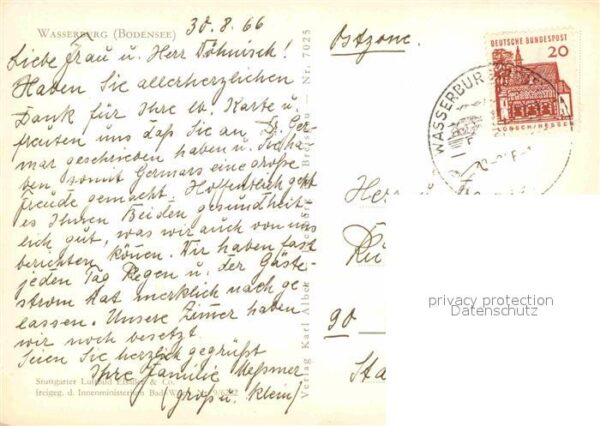 WASSERBURG (BODENSEE)
30.8.66
Liebe Frau u. Herr Döhnisch!
Haben Sie allerherzlichen
Dank für Ihre lb. Karte u.
freuten uns daß Sie an Dr. Ger-
mar geschrieben haben u. Sie ha-
ben somit Germars eine große
Freude gemacht. Hoffentlich geht
es Ihnen Beiden gesundheit-
lich gut, was wir auch von uns
berichten können. Wir haben fast
jeden Tag Regen u. der Gäste-
strom hat merklich nach ge
lassen. Unsere Zimer haben
wir noch besetzt.
Seien Sie herzlich gegrüßt
Ihre Familie Meßmer
(Groß u. Klein)
Stuttgarter Luftbild & Co.
freigeg. d. Innenministerium
Verlag Karl Nr. 7025
Ostzone.
DEUTSCHE BUNDESPOST
20
LORSCH/HESSEN
WASSERBUR
Herr u.
90
privacy protection
Datenschutz